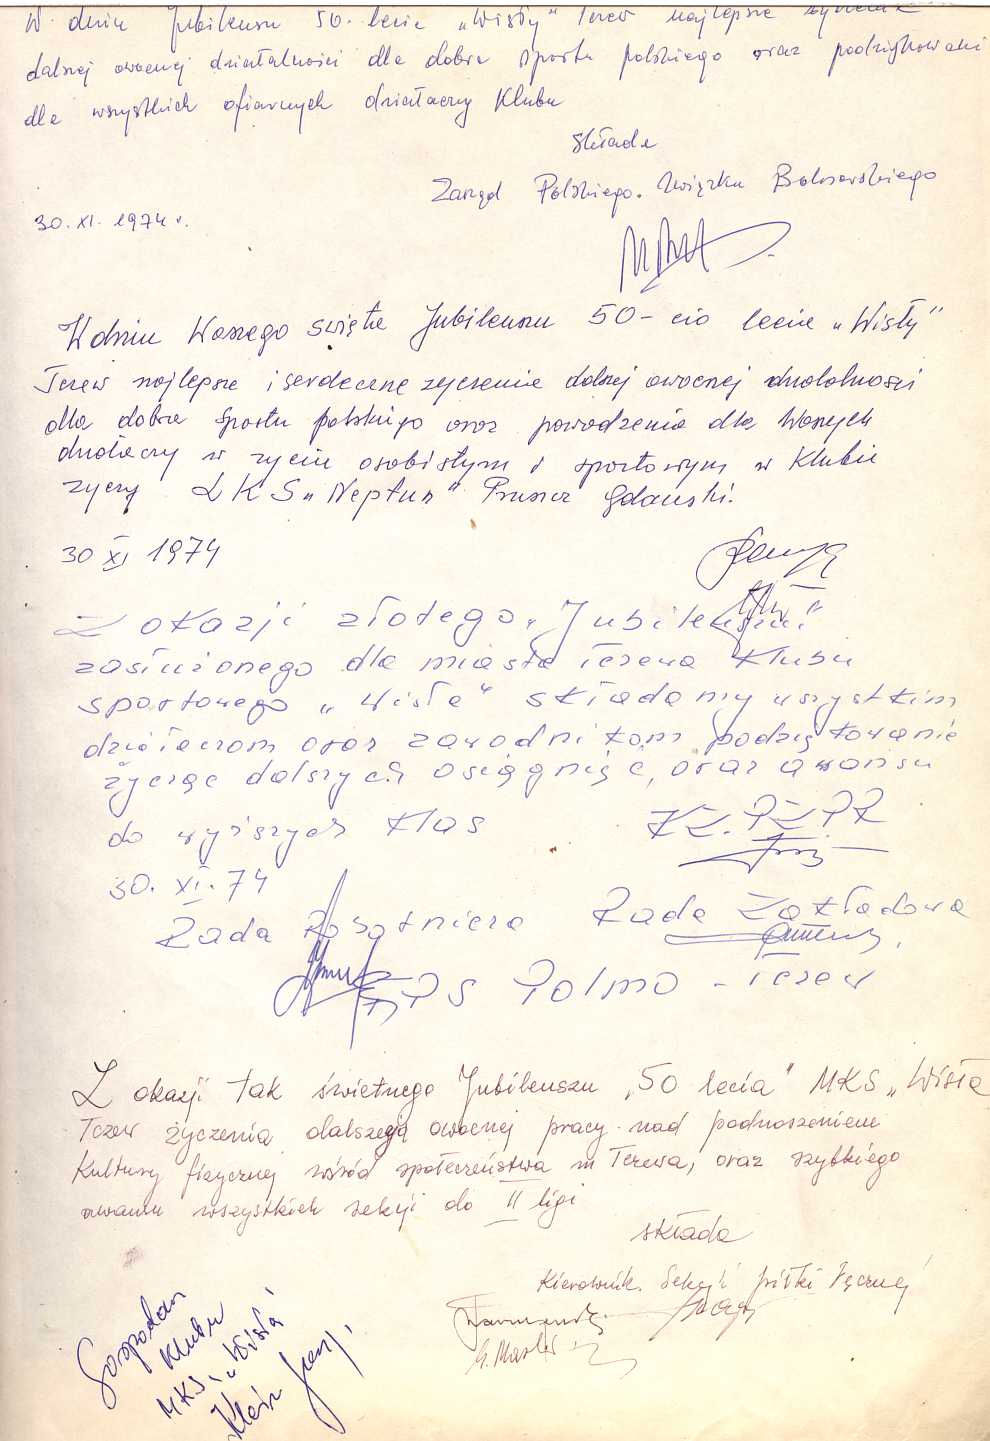 W dniu Jubileuszu 50-lecia „Wisły” Tczew najlepsze życzenia
dalszej owocnej działalności dla dobra sportu polskiego oraz podziękowani
dla wszystkich ofiarnych działaczy Klubu
składa
Zarząd Polskiego Związku Bokserskiego
30.XI.1974 r.
W dniu Waszego święta Jubileuszu 50-cio lecia „Wisły”
Tczew najlepsze i serdeczne życzenia dalszej owocnej działalności
dla dobra sportu polskiego oraz powodzenia dla Waszych
działaczy w życiu osobistym i sportowym w Klubie
życzy LKS „Neptun” Pruszcz Gdański.
30 XI 1974
Z okazji złotego „Jubileuszu”
zasłużonego dla miasta Tczewa Klubu
sportowego „Wisła” składamy wszystkim
działaczom oraz zawodnikom podziękowanie
życząc dalszych osiągnięć, oraz awansu
do wyższych klas
KZ.PZPR
30.XI.74
Rada Robotnicza Rada Zakładowa
FPS Polmo - Tczew
Z okazji tak świetnego Jubileuszu „50 lecia” MKS „Wisła
Tczew życzenia dalszej owocnej pracy nad podnoszeniem
Kultury fizycznej wśród społeczeństwa m Tczewa, oraz szybkiego
awansu wszystkich sekcji do II ligi
składa
Kierownik Sekcji piłki ręcznej
Gospodarz
Klubu
MKS „Wisła